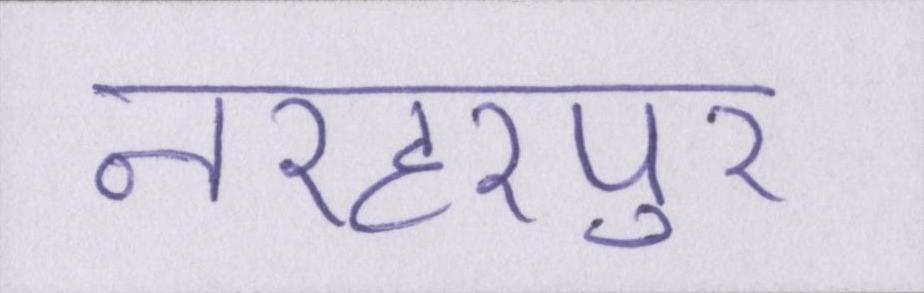 नरहरपुर